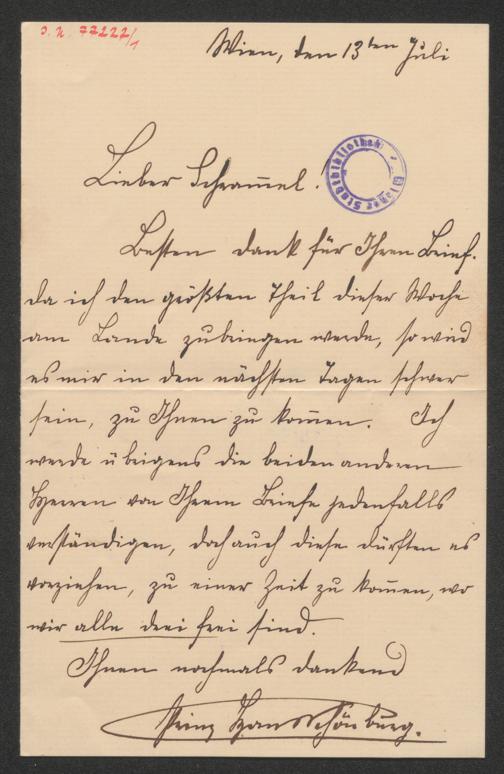 J. N. 77222/1
Wien, den 13ten Juli
Lieber Schram̅el!
Wiener Stadtbibliothek
Besten dank für Ihren Brief.
da ich den größten Theil dieser Woche
am Lande zubringen werde, so wird
es mir in den nächsten Tagen schwer
sein, zu Ihnen zu kom̅en. Ich
werde übrigens die beiden anderen
Herren von Ihrem Briefe jedenfalls
verständigen, doch auch diese dürften es
vorziehen, zu einer Zeit zu kom̅en, wo
wir alle drei frei sind.
Ihnen nochmals dankend
Prinz Hans Schönburg.